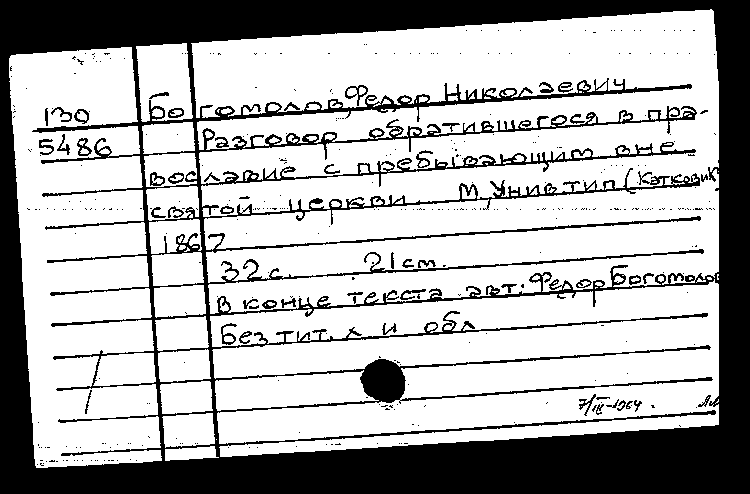 130 Богомолов, Федор Николаевич.
5486 Разговор обратившегося в пра-
вославие с пребывающим вне
святой церкви. М., Унив. тип (Катков и К°)
1867
32 с. 21 см.
В конце текста авт: Федор Богомолов
Без тит. л и обл
7/III-1964.